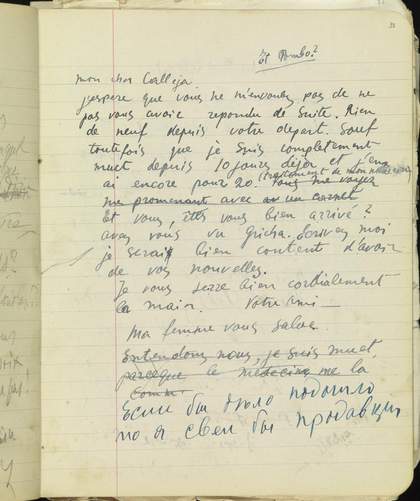 Et Dumbo?
mon cher Calleja
j'espère que vous ne m'envoulez pas de ne
pas vous avoir repondu de suite. Rien
de neuf depuis votre depart. Sauf
toutefois que je suis completement
muet depuis 10 jours dejà et j'en
ai encore pour 20. (traitement de mon
vous me voyez
me promenant avec un carnet
Et vous, êtes vous bien arrivé?
avez vous vu Gricha. Ecrivez moi
je serais bien content d'avoir
de vos nouvelles.
Je vous serre bien cordialement
la main. Votre ami —
Ma femme vous salue.
Entendons nous, je suis muet,
parceque le médecin me l'a
comm
Если бы дело подошло
но я съел бы продавщ